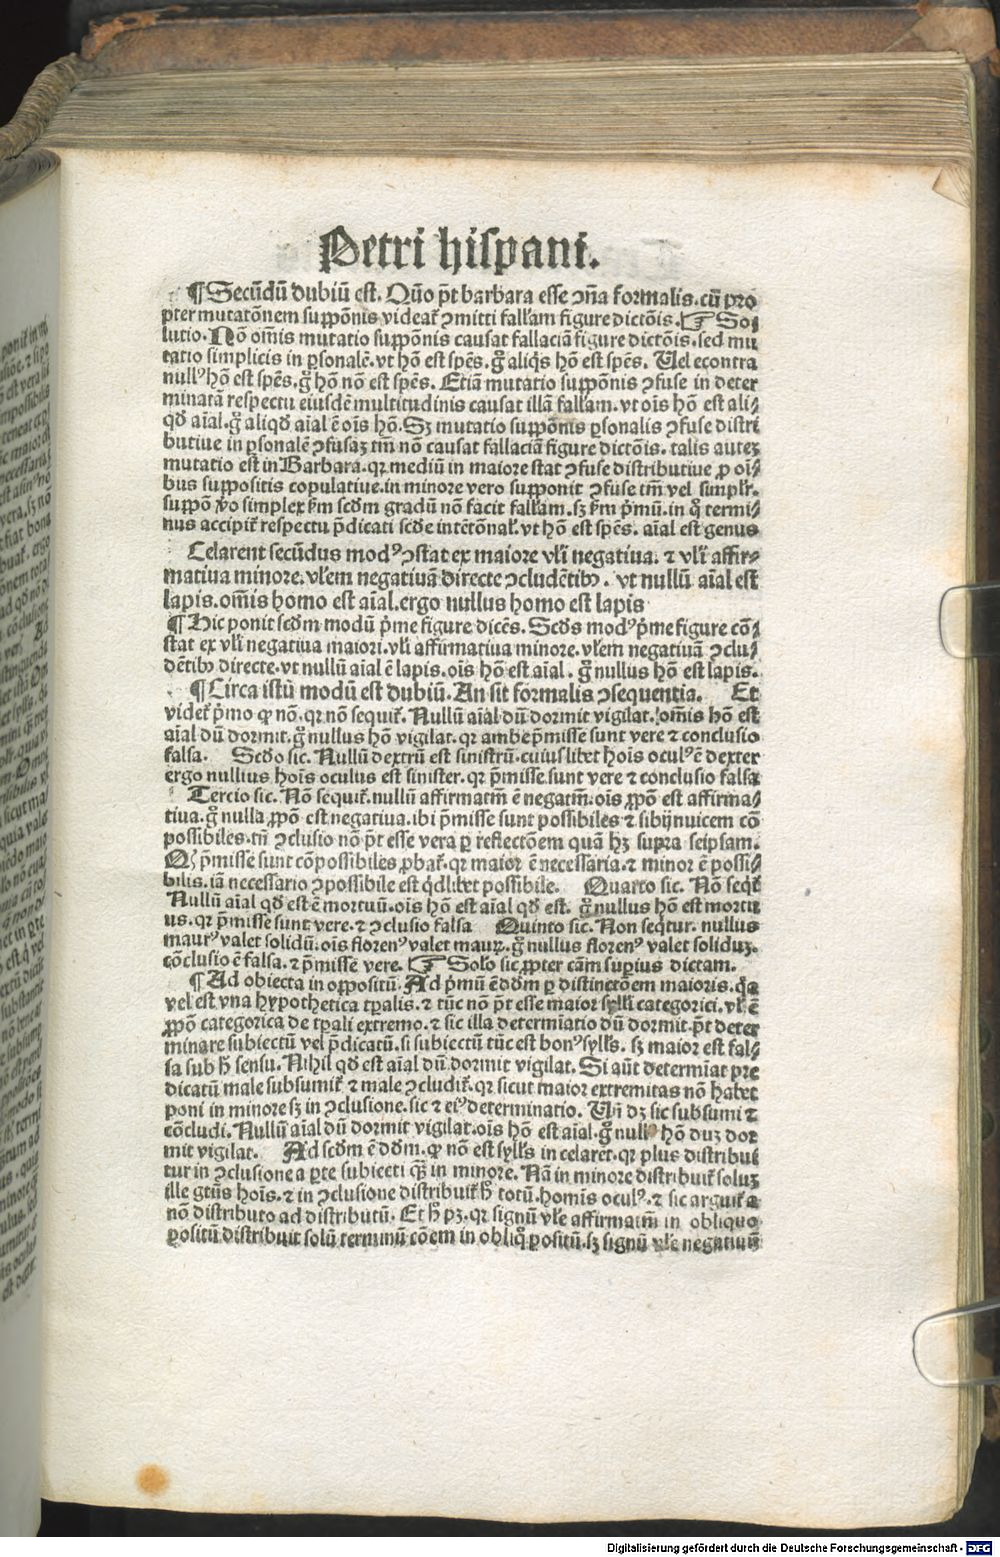 Petri hispani.
¶ Secūdū dubiū est. Quō p̄t barbara esse ↄn̄a formalis. cū pro
pter mutatōnem suppōnis videat̄ ↄmitti fall̄am figure dictōis. ☞ So⸗
lutio. Nō om̄is mutatio suppōnis causat fallaciā figure dictōis. sed mu
tatio simplicis in ꝑsonalē. vt hō est spēs. gͦ aliq̄s hō est spēs. Uel econtra
nullꝰ hō est spēs. gͦ hō nō est spēs. Etiā mutatio suppōnis ↄfuse in deter
minatā respectu eiusdē multitudinis causat illā fall̄am. vt oīs hō est ali⸗
qd̄ aīal. gͦ aliqd̄ aīal ē oīs hō. Sꝫ mutatio suppōnis ꝑsonalis ↄfuse distri
butiue in ꝑsonalē ↄfusaꝫ tm̄ nō causat fallaciā figure dictōis. talis auteꝫ
mutatio est in Barbara. qꝛ mediū in maiore stat ↄfuse distributiue ꝓ oī⸗
bus suppositis copulatiue. in minore vero supponit ↄfuse tm̄ vel simpl̄r.
suppō ꝟo simplex s̄m scd̄m gradū nō facit fall̄am. sꝫ s̄m p̄mū. in qͦ termi⸗
nus accipit̄ respectu p̄dicati scd̄e intētōnal̄. vt hō est spēs. aīal est genus
Celarent secūdus modꝰ ↄstat ex maiore vl̄i negatiua. ⁊ vl̄i affir⸗
matiua minore. vl̄em negatiuā directe ↄcludētibꝫ. vt nullū aīal est
lapis. om̄is homo est aīal. ergo nullus homo est lapis
¶ Hic ponit scd̄m modū p̄me figure dicēs. Scd̄s modꝰ p̄me figure cō⸗
stat ex vl̄i negatiua maiori. vl̄i affirmatiua minore. vl̄em negatiuā ↄclu⸗
dētibꝫ directe. vt nullū aīal ē lapis. oīs hō est aīal. gͦ nullus hō est lapis.
¶ Circa istū modū est dubiū. An sit formalis ↄsequentia. Et
videt̄ p̄mo ꝙ nō. qꝛ nō sequit̄. Nullū aīal dū dormit vigilat. om̄is hō est
aīal dū dormit. gͦ nullus hō vigilat. qꝛ ambe p̄misse sunt vere ⁊ conclusio
falsa. Scd̄o sic. Nullū dextrū est sinistrū. cuiuslibet hoīs oculꝰ ē dexter
ergo nullius hoīs oculus est sinister. qꝛ p̄misse sunt vere ⁊ conclusio falsa
Tercio sic. Nō sequit̄. nullū affirmatm̄ ē negatm̄. oīs ꝓpō est affirma⸗
tiua. gͦ nulla ꝓpō est negatiua. ibi p̄misse sunt possibiles ⁊ sibijnuicem cō
possibiles. tn̄ ↄclusio nō p̄t esse vera ꝑ reflectōem quā hꝫ supra seipsam.
Qꝫ p̄misse sunt cōpossibiles ꝓbat̄. qꝛ maior ē necessaria. ⁊ minor ē possi⸗
bilis. iā necessario ↄpossibile est qd̄libet possibile. Quarto sic. Nō seqt̄
Nullū aīal qd̄ est ē mortuū. oīs hō est aīal qd̄ est. gͦ nullus hō est mortu
us. qꝛ p̄misse sunt vere. ⁊ ↄclusio falsa Quinto sic. Non seqtur. nullus
maurꝰ valet solidū. oīs florenꝰ valet mauꝝ. gͦ nullus florenꝰ valet soliduꝫ.
cōclusio ē falsa. ⁊ p̄misse vere. ☞ Solo sic ꝓpter cām suꝑius dictam.
¶ Ad obiecta in oppositū. Ad p̄mū ē dd̄m ꝑ distinctōem maioris. qꝛ
vel est vna hypothetica tp̄alis. ⁊ tūc nō p̄t esse maior syll̄i categorici. vl̄ ē
ꝓpō categorica de tp̄ali extremo. ⁊ sic illa determīatio dū dormit. p̄t deter
minare subiectū vel p̄dicatū. si subiectū tūc est bonꝰ syll̄s. sꝫ maior est fal⸗
sa sub h̄ sensu. Nihil qd̄ est aīal dū dormit vigilat. Si aūt determīat pre
dicatū male subsumit̄ ⁊ male ↄcludit̄. qꝛ sicut maior extremitas nō habet
poni in minore sꝫ in ↄclusione. sic ⁊ eiꝰ determinatio. Un̄ dꝫ sic subsumi ⁊
cōcludi. Nullū aīal dū dormit vigilat. oīs hō est aīal. gͦ nullꝰ hō duꝫ dor
mit vigilat. Ad scd̄m ē dd̄m. ꝙ nō est syll̄s in celarēt. qꝛ plus distribui
tur in ↄclusione a ꝑte subiecti qꝫ in minore. Nā in minore distribuit̄ soluꝫ
ille gtūs hoīs. ⁊ in ↄclusione distribuit̄ h̄ totū. hominis oculꝰ. ⁊ sic arguit̄ a
nō distributo ad distributū. Et h̄ pꝫ. qꝛ signū vl̄e affirmatm̄ in obliquo
positū distribuit solū terminū cōem in obliqͦ positū. sꝫ signū vl̄e negatiuū
Digitalisierung gefördert durch die Deutsche Forschungsgemeinschaft - DFG